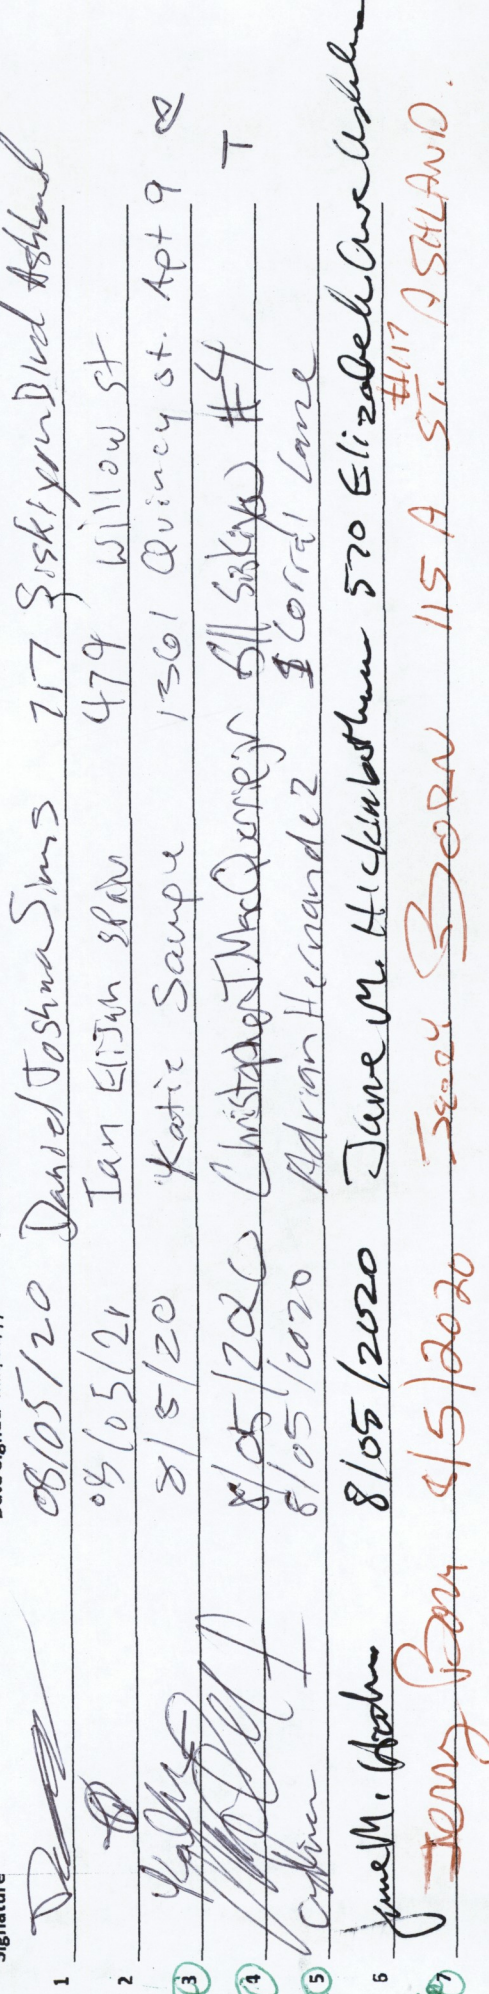 Signature
1 08/05/20 Daniel Joshua Sims 717 Siskiyou Blvd Ashland
2 08/05/21 Ian Elijah 479 Willow St
3 8/5/20 Katie Sample 1361 Quincy st. Apt 9
4 8/05/2020 Christopher J MacQuerrie jr 511 Siskiyou #4
5 8/05/2020 Adrian Hernandez 1 Corral Lane
6 Jane M. 8/05/2020 Jane M. Hickinbotham 570 Elizabeth Ave Ashland
7 Jerry Born 8/5/2020 Jerry BORN 115 A ST. #117 ASHLAND.